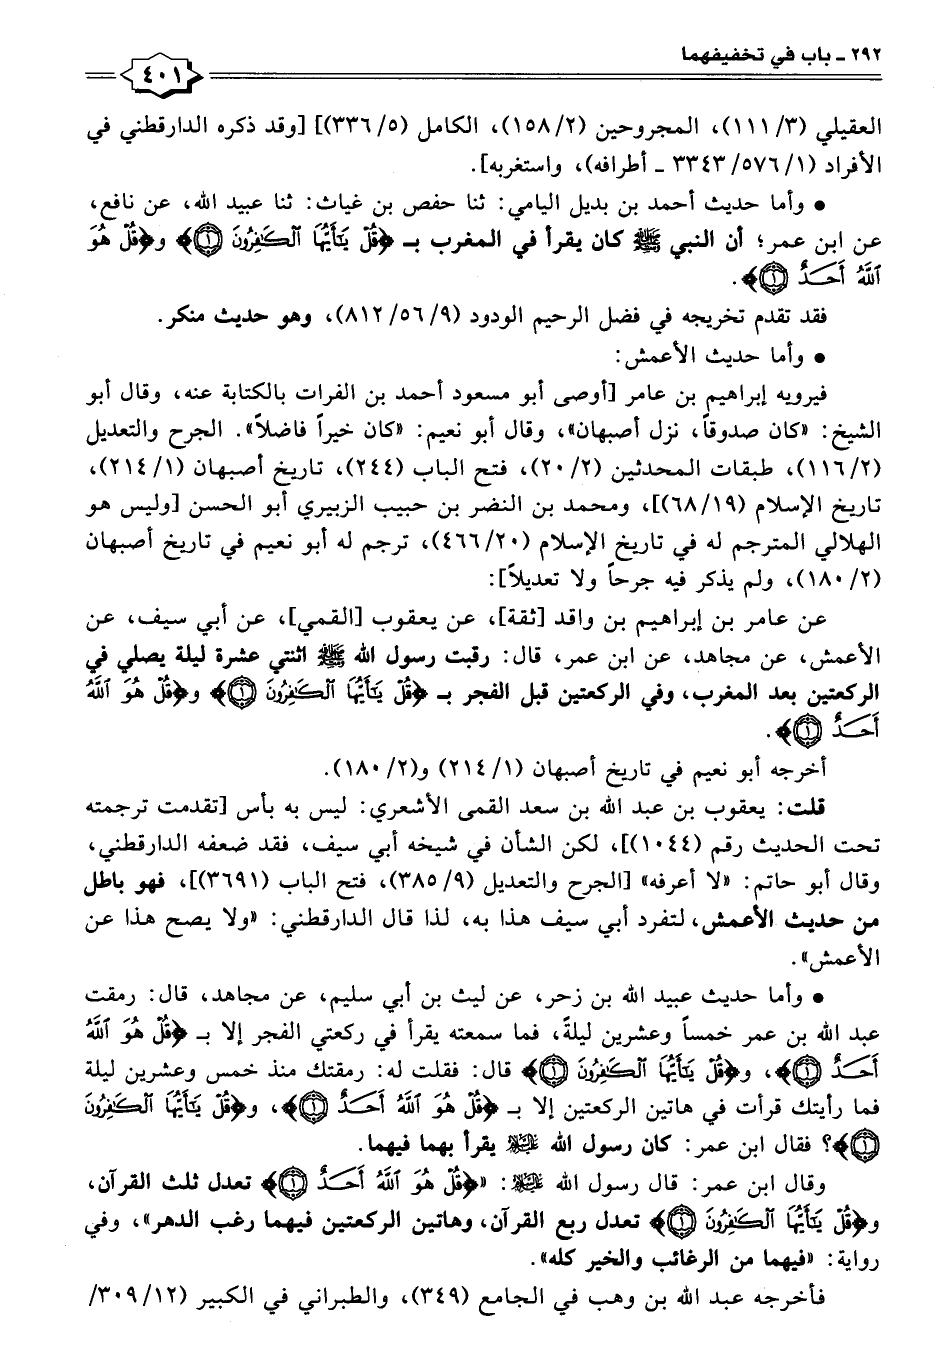 ٢٩٢ ـ باب في تخفيفهما
٤٠١
العقيلي (٣/ ١١١)، المجروحين (٢/ ١٥٨)، الكامل (٥/ ٣٣٦)] [وقد ذكره الدارقطني في
الأفراد (١/ ٥٧٦/ ٣٣٤٣ ـ أطرافه)، واستغربه].
• وأما حديث أحمد بن بديل اليامي: ثنا حفص بن غياث: ثنا عبيد الله، عن نافع،
عن ابن عمر؛ أن النبي ﷺ كان يقرأ في المغرب بـ ﴿قُلْ يَٰٓأَيُّهَا ٱلْكَٰفِرُونَ ۝١﴾ و﴿قُلْ هُوَ
ٱللَّهُ أَحَدٌ ۝١﴾.
فقد تقدم تخريجه في فضل الرحيم الودود (٩/ ٥٦/ ٨١٢)، وهو حديث منكر.
• وأما حديث الأعمش:
فيرويه إبراهيم بن عامر [أوصى أبو مسعود أحمد بن الفرات بالكتابة عنه، وقال أبو
الشيخ: «كان صدوقاً، نزل أصبهان»، وقال أبو نعيم: «كان خيراً فاضلاً». الجرح والتعديل
(٢/ ١١٦)، طبقات المحدثين (٢/ ٢٠)، فتح الباب (٢٤٤)، تاريخ أصبهان (١/ ٢١٤)،
تاريخ الإسلام (١٩/ ٦٨)]، ومحمد بن النضر بن حبيب الزبيري أبو الحسن [وليس هو
الهلالي المترجم له في تاريخ الإسلام (٢٠/ ٤٦٦)، ترجم له أبو نعيم في تاريخ أصبهان
(٢/ ١٨٠)، ولم يذكر فيه جرحاً ولا تعديلاً]:
عن عامر بن إبراهيم بن واقد [ثقة]، عن يعقوب [القمي]، عن أبي سيف، عن
الأعمش، عن مجاهد، عن ابن عمر، قال: رقبت رسول الله ﷺ اثنتي عشرة ليلة يصلي في
الركعتين بعد المغرب، وفي الركعتين قبل الفجر بـ ﴿قُلْ يَٰٓأَيُّهَا ٱلْكَٰفِرُونَ ۝١﴾ و﴿قُلْ هُوَ ٱللَّهُ
أَحَدٌ ۝١﴾.
أخرجه أبو نعيم في تاريخ أصبهان (١/ ٢١٤) و(٢/ ١٨٠).
قلت: يعقوب بن عبد الله بن سعد القمي الأشعري: ليس به بأس [تقدمت ترجمته
تحت الحديث رقم (١٠٤٤)]، لكن الشأن في شيخه أبي سيف، فقد ضعفه الدارقطني،
وقال أبو حاتم: «لا أعرفه» [الجرح والتعديل (٩/ ٣٨٥)، فتح الباب (٣٦٩١)]، فهو باطل
من حديث الأعمش، لتفرد أبي سيف هذا به، لذا قال الدارقطني: «ولا يصح هذا عن
الأعمش».
• وأما حديث عبيد الله بن زحر، عن ليث بن أبي سليم، عن مجاهد، قال: رمقت
عبد الله بن عمر خمساً وعشرين ليلةً، فما سمعته يقرأ في ركعتي الفجر إلا بـ ﴿قُلْ هُوَ ٱللَّهُ
أَحَدٌ ۝١﴾، و﴿قُلْ يَٰٓأَيُّهَا ٱلْكَٰفِرُونَ ۝١﴾ قال: فقلت له: رمقتك منذ خمس وعشرين ليلة
فما رأيتك قرأت في هاتين الركعتين إلا بـ ﴿قُلْ هُوَ ٱللَّهُ أَحَدٌ ۝١﴾، و﴿قُلْ يَٰٓأَيُّهَا ٱلْكَٰفِرُونَ
۝١﴾؟ فقال ابن عمر: كان رسول الله ﷺ يقرأ بهما فيهما.
وقال ابن عمر: قال رسول الله ﷺ: «﴿قُلْ هُوَ ٱللَّهُ أَحَدٌ ۝١﴾ تعدل ثلث القرآن،
و﴿قُلْ يَٰٓأَيُّهَا ٱلْكَٰفِرُونَ ۝١﴾ تعدل ربع القرآن، وهاتين الركعتين فيهما رغب الدهر»، وفي
رواية: «فيهما من الرغائب والخير كله».
فأخرجه عبد الله بن وهب في الجامع (٣٤٩)، والطبراني في الكبير (١٢/ ٣٠٩/